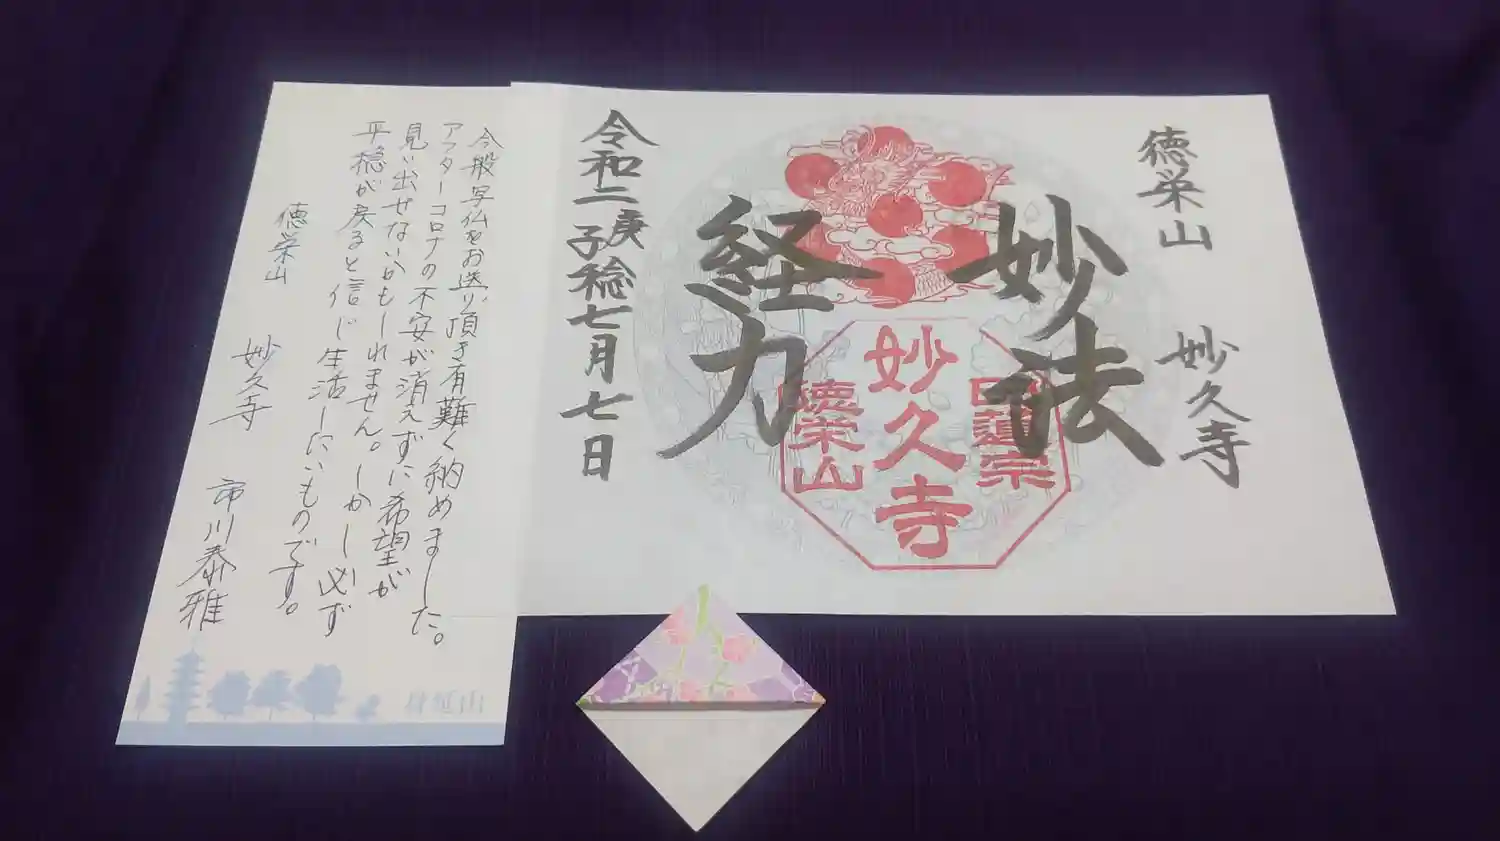 徳栄山
妙久寺
妙法
経力
日蓮宗
妙久寺
徳栄山
令和二庚子稔七月七日
今般写仏をお送り頂き有難く納めました。
アフターコロナの不安が消えずに希望が
見い出せないかもしれません。しかし必ず
平穏が戻ると信じ生活したいものです。
徳栄山 妙久寺 市川泰雅
身延山